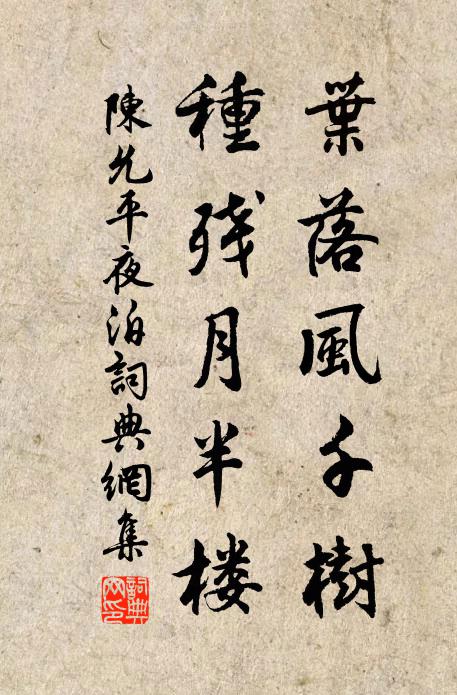 葉落風千樹
種残月半楼
陳允平夜泊詞典網集
詞典网印